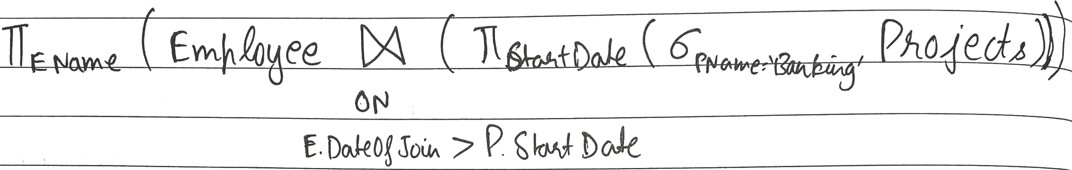 π EName ( Employee ⋈ ( π StartDate ( σ PName='Banking' Projects)))
ON
E.DateOfJoin > P.StartDate